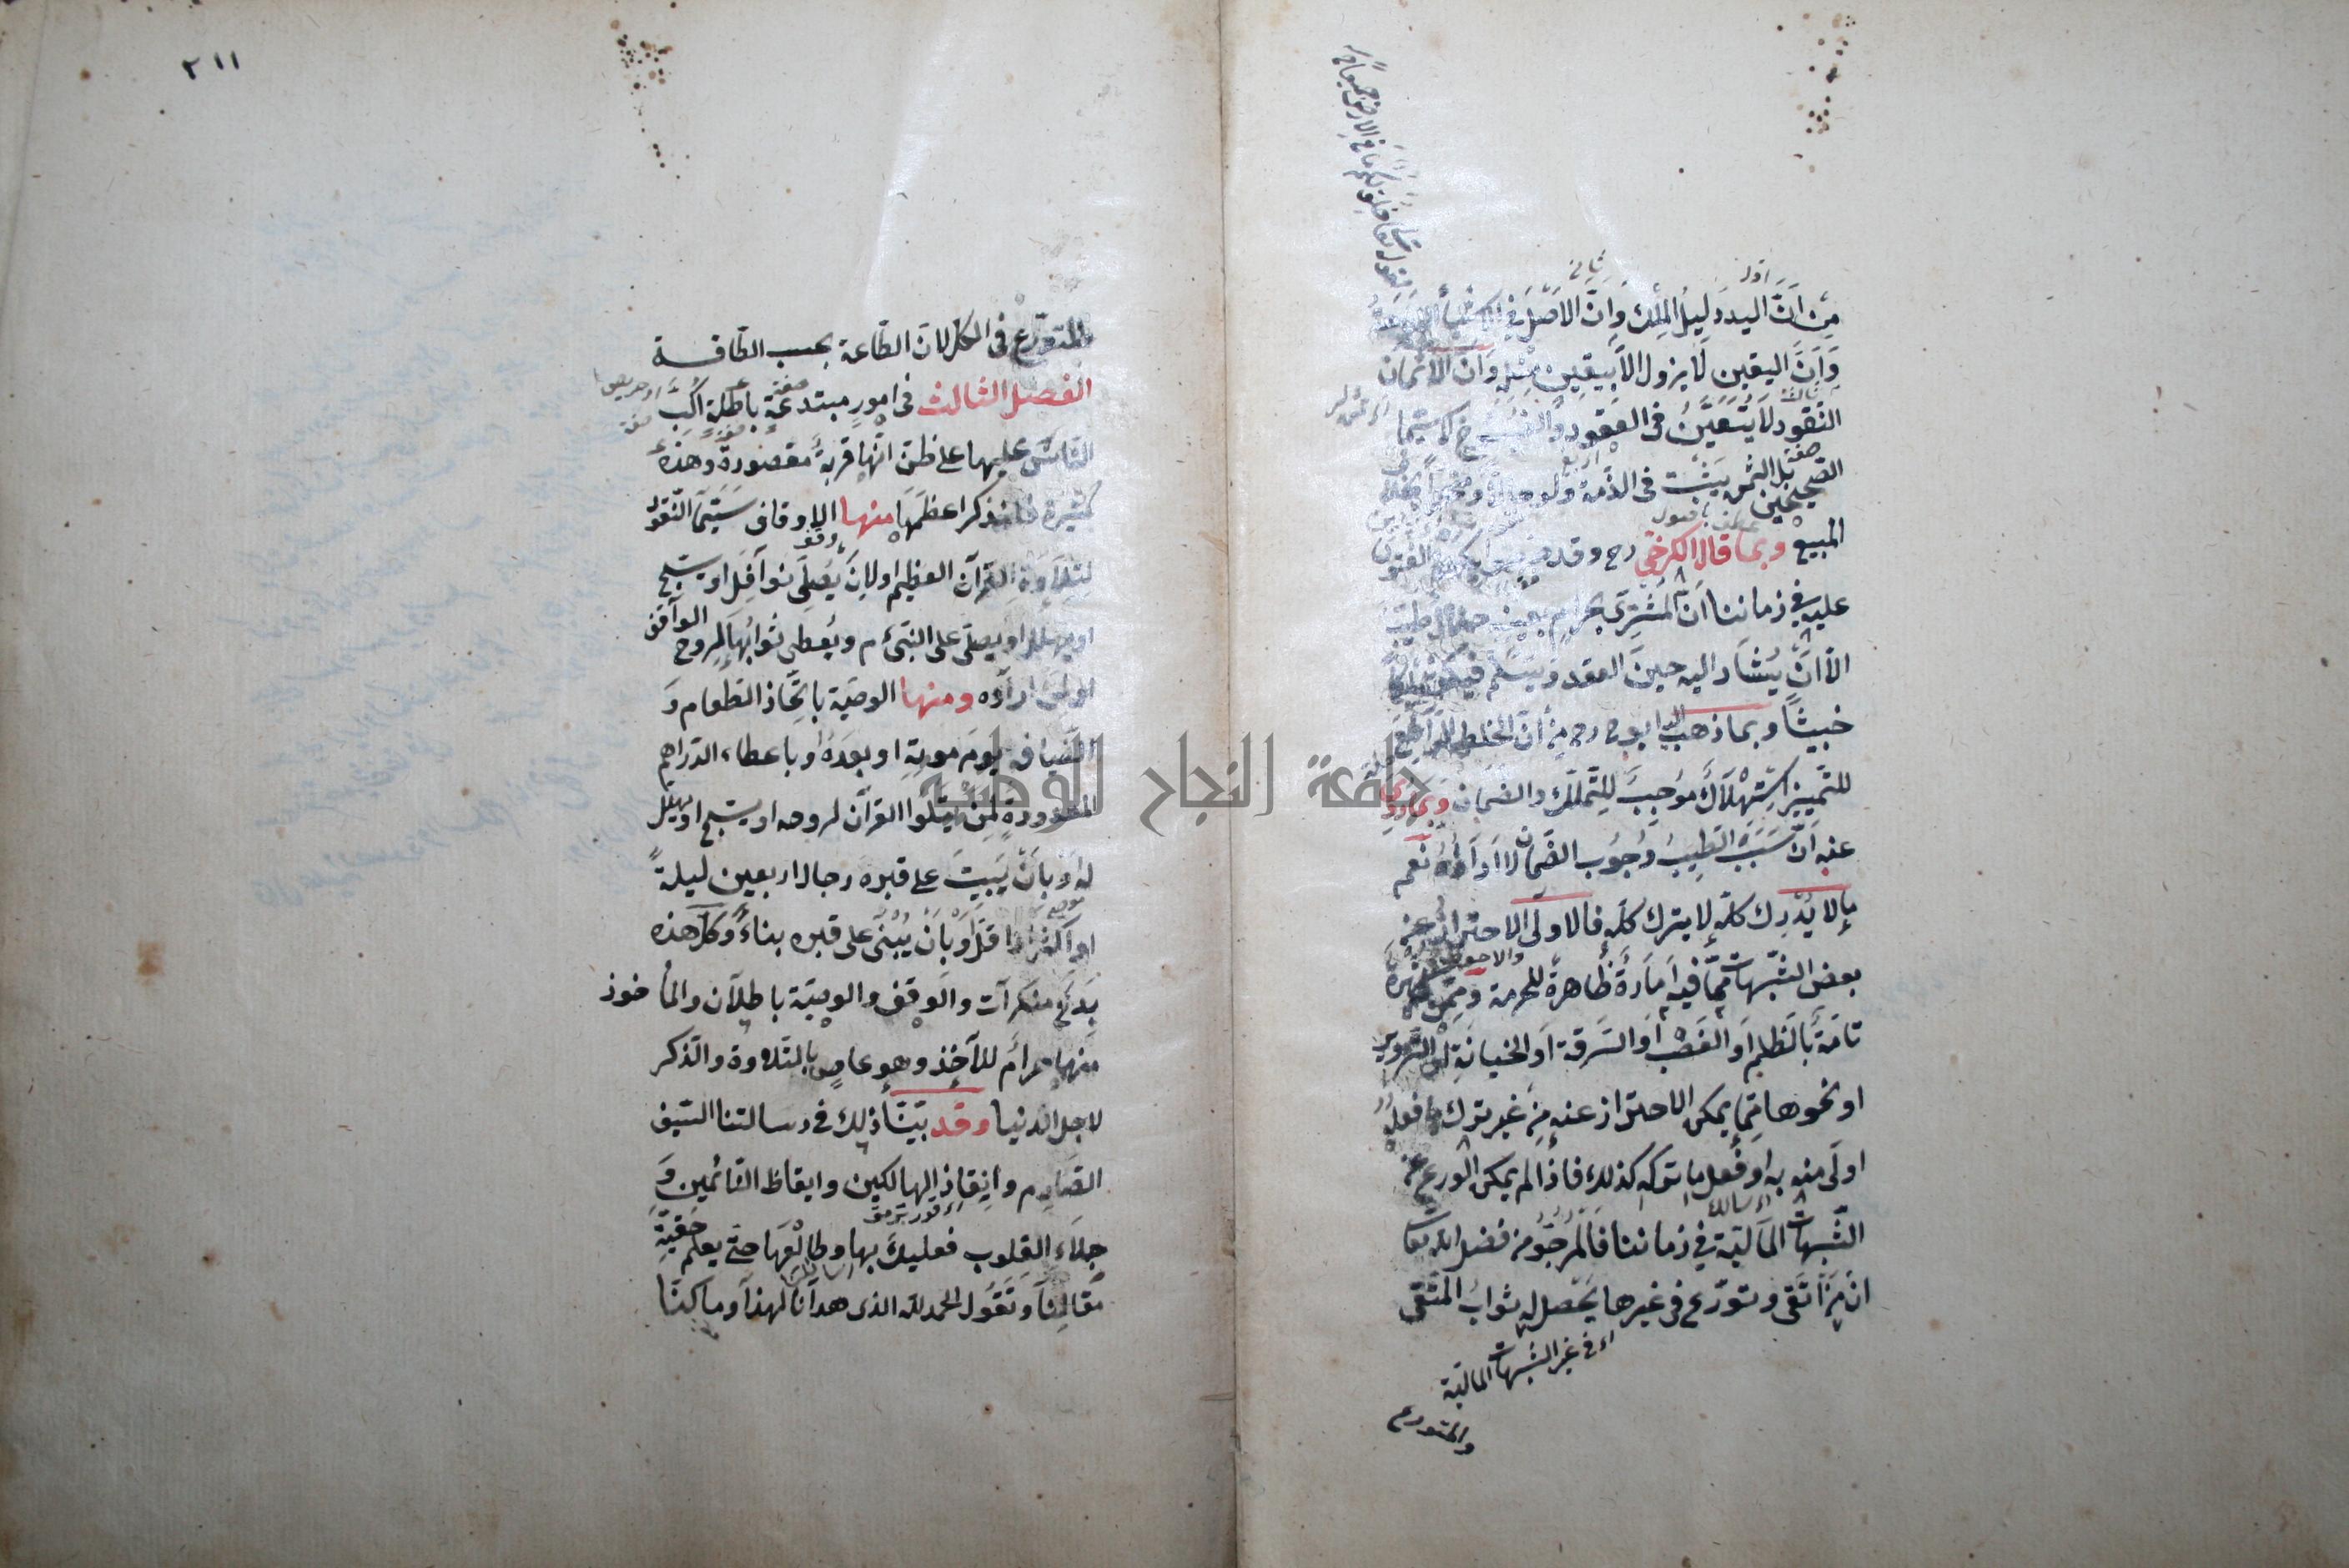 لقوله تعالى خلق لكم ما في الارض جميعا
اول
ثاني
من ان اليد دليل الملك وان الاصل في الاشياء الاباحة
وان اليقين لا يزول الا بيقين مثله وان الاثمان
ثالث
النقود لا يتعين في العقود والفسوخ لا سيما
صفة
رابع
الصحيحين بل الثمن يثبت في الذمة ولو حالا
المبيع وبما قال الكرخي رح وقد
عطف بما قبول
عليه في زماننا ان المشترى بحرام بعينه حلال طيب
الا ان يشار اليه حين العقد ويسلم فيكون ملكا
خبيثا وبما ذهب اليه ابو ح رح من ان الخلط الرافع
للتمييز استهلاك موجب للتملك والضمان وبما روى
عنه ان سبب الطيب وجوب الضمان لا اداؤه نعم
ما لا يدرك كله لا يترك كله فالاولى الاحتراز عن
والاحوط
بعض الشبهات مما فيه امارة ظاهرة للحرمة وممن له شهرة
تامة بالظلم او الغصب او السرقة او الخيانة او التزوير
او نحوها مما يمكن الاحتراز عنه من غير ترك ما فعله
اولى منه به او فعل ما تركه كذلك فاذا لم يمكن الورع عن
الشبهات المالية في زماننا فالمرجو من فضل الله تعالى
ان من اتقى وتورع في غيرها يحصل له ثواب المتقى
اى في غير الشبهات المالية
والمتورع
٢١١
المتورع في الكل لان الطاعة بحسب الطاقة
الفصل الثالث في امور مبتدعة باطلة اكب
صفة
الناس عليها على ظن انها قربة مقصودة وهذه
كثيرة فلنذكر اعظمها منها الاوقاف سيما النقود
وقف
لتلاوة القرآن العظيم او لان يصلى نوافل او يسبح
او يهلل او يصلى على النبي م ويعطى ثوابها لروح الواقف
او لمن اراده ومنها الوصية باتخاذ الطعام و
الضيافة يوم موته او بعده او باعطاء الدراهم
المعدودة لمن يتلوا القرآن لروحه او يسبح او يهلل
له او بان يبيت على قبره رجال اربعين ليلة
او اكثر او اقل او بان يبنى على قبره بناء وكل هذه
بدع منكرات والوقف والوصية باطلان والمأخوذ
منهما حرام للآخذ وهو عاص بالتلاوة والذكر
لاجل الدنيا وقد بينا ذلك في رسالتنا السيف
الصارم وانقاذ الهالكين وايقاظ النائمين و
جلاء القلوب فعليك بها وطالعها حتى يعلم حقية
مقالنا وتقول الحمد لله الذى هدانا لهذا وما كنا
جامعة النجاح الوطنية